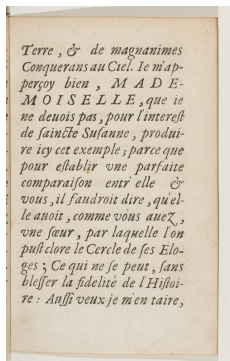 Terre, & de magnanimes
Conquerans au Ciel. Ie m'ap-
perçoy bien, MADE-
MOISELLE, que ie
ne deuois pas, pour l'interest
de saincte Susanne, produi-
re icy cet exemple; parce que
pour establir vne parfaite
comparaison entr'elle &
vous, il faudroit dire, qu'el-
le auoit, comme vous auez,
vne sœur, par laquelle l'on
pust clore le Cercle de ses Elo-
ges; Ce qui ne se peut, sans
blesser la fidelité de l'Histoi-
re: Aussi veux-je m'en taire,